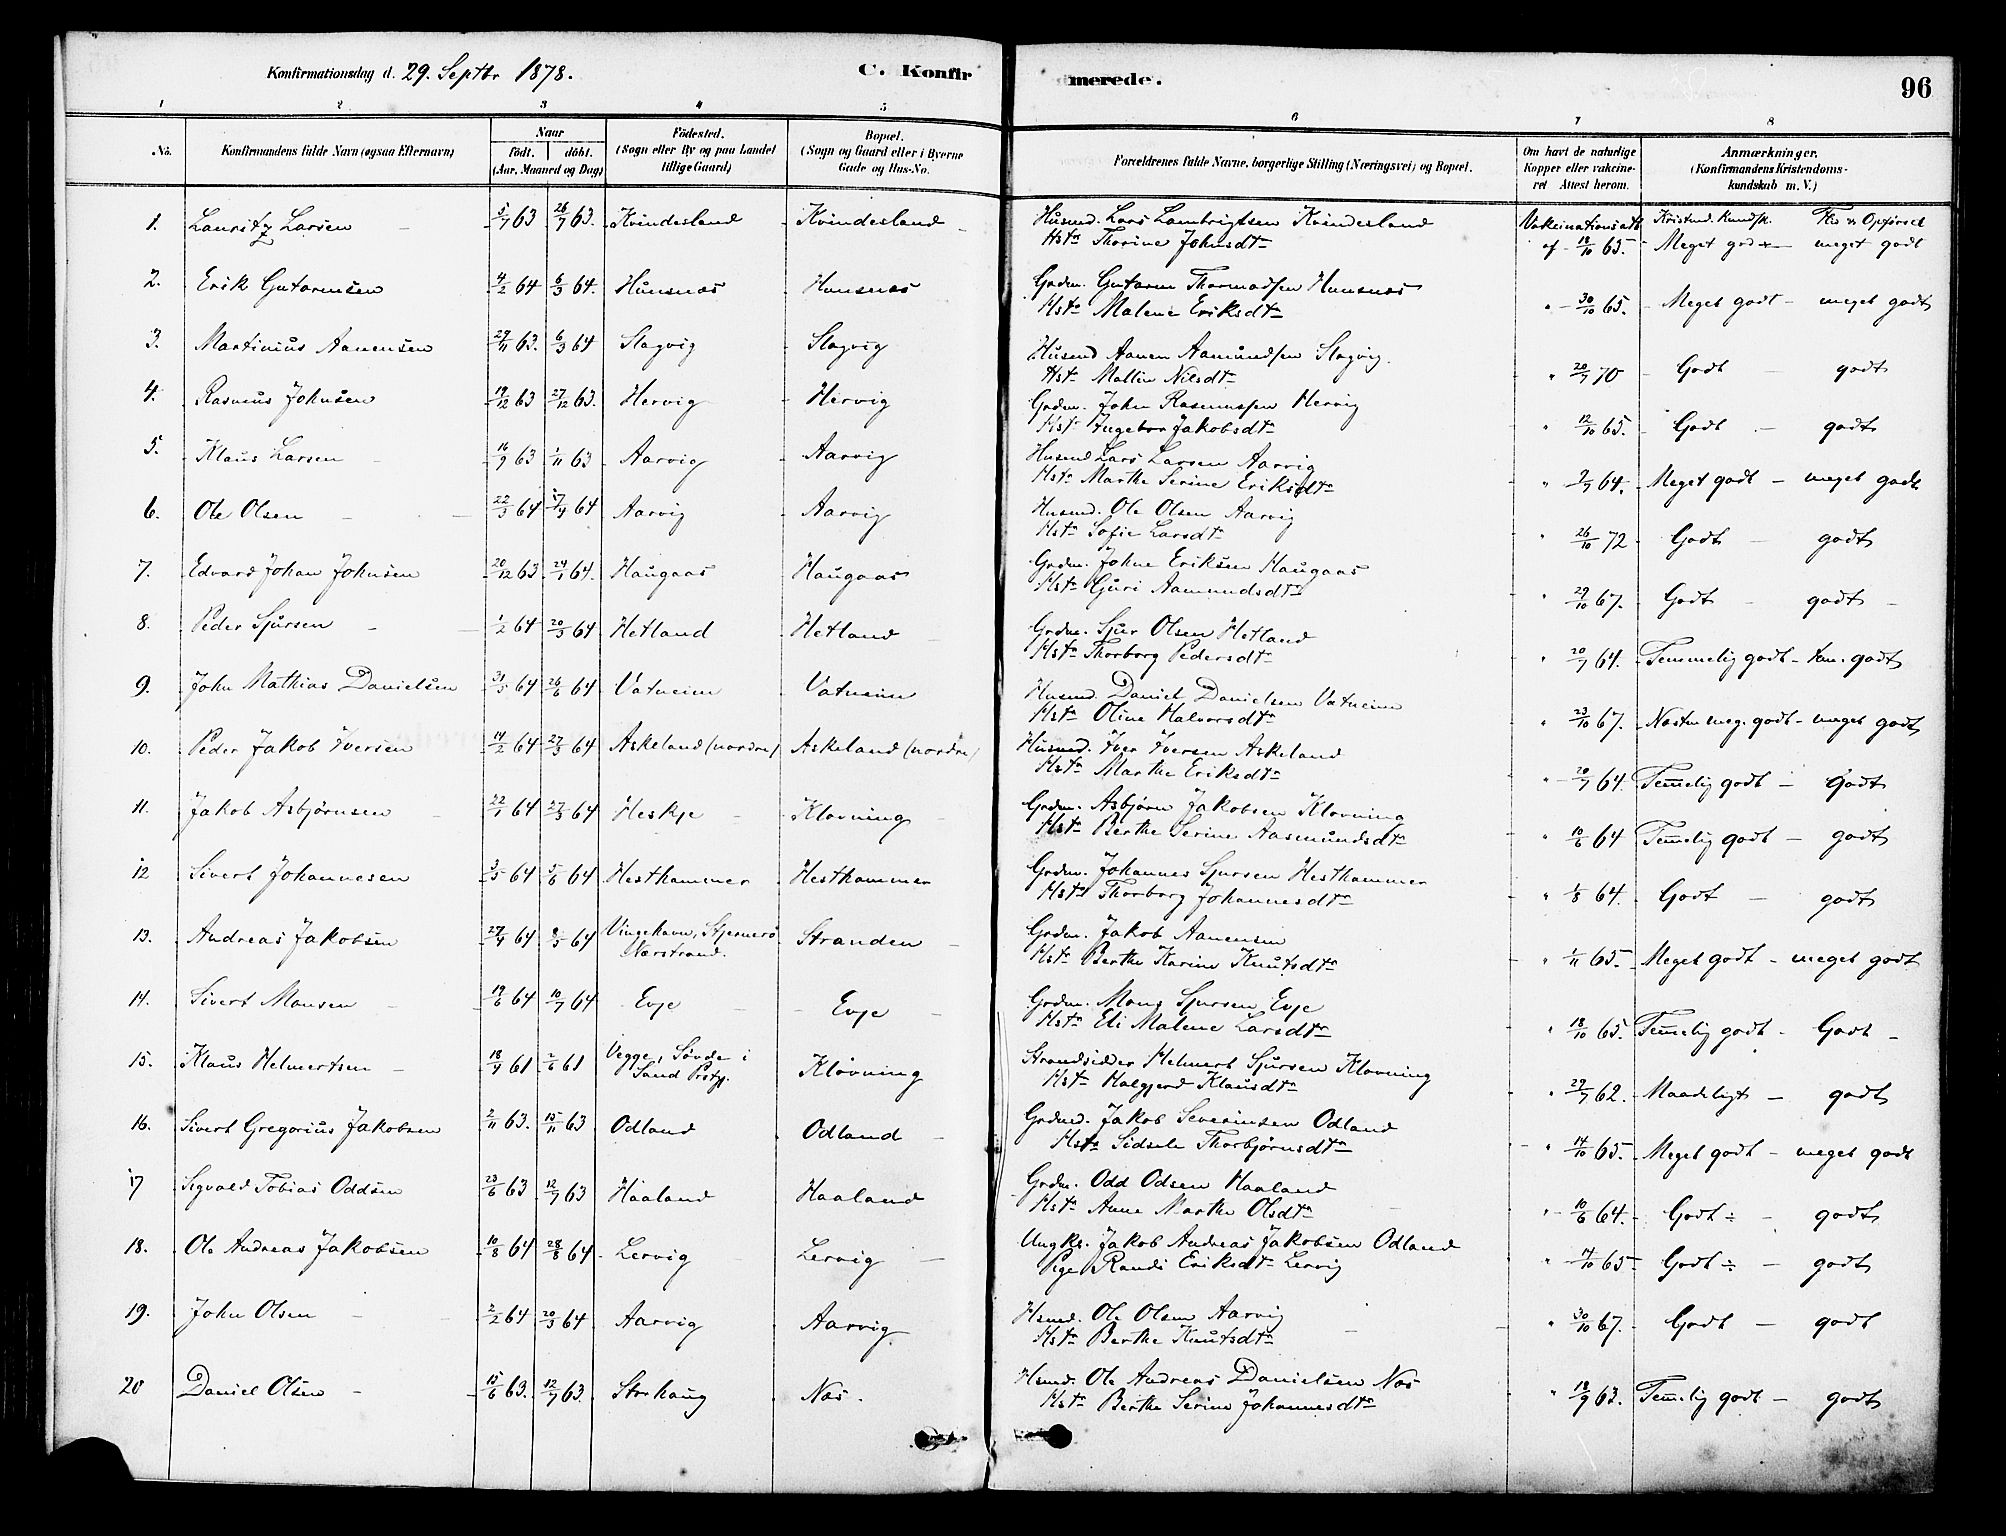 Konfirmationsdag d. 29. Septbr 1878. C. Konfirmerede. 96
1 2 3 4 5 6 7 8
No. Konfirmandens fulde Navn (ogsaa Efternavn) Naar födt. döbt. (Aar, Maaned og Dag) Födested. (Sogn eller By og paa Landet tillige Gaard) Bopæl. (Sogn og Gaard eller i Byerne Gade og Hus-No. Forældrenes fulde Navne, borgerlige Stilling (Næringsvei) og Bopæl. Om havt de naturlige Kopper eller vakcineret. Attest herom. Anmærkninger. (Konfirmandens Kristendomskundskab m. V.)
1. Lauritz Larsen 5/7 63 26/7 63. Kvindesland Kvindesland Husmd. Lars Lambrigtsen Kvindesland Vakcinationsatt. Kristend. Kundsk. Opförsel
Hstr Thorine Johnsdtr af 18/10 65. Meget godt meget godt
2. Erik Gutormsen 4/2 64 6/3 64. Hunsnæs Hunsnæs Grdm. Gutorm Thormodsen Hunsnæs
Hstr Malene Eriksdtr " 30/10 65. Meget godt - meget godt
3. Martinius Aanensen 27/11 63. 6/3 64 Slogvig Slogvig Husmd Aanen Aamundsen Slogvig.
Hstr Mallin Nilsdtr " 20/7 70 Godt - godt
4. Rasmus Johnsen 19/12 63 27/12 63. Hervig Hervig Grdm. John Rasmussen Hervig
Hstr Ingebor Jakobsdtr " 12/10 65. Godt - godt
5. Klaus Larsen 16/9 63 1/11 63 Aarvig Aarvig Husmd Lars Larsen Aarvig
Hstr Marthe Serine Eriksdtr " 9/7 64. Meget godt - meget godt
6. Ole Olsen 22/3 64 17/4 64 Aarvig Aarvig Husmd. Ole Olsen Aarvig
Hstr Sofie Larsdtr " 26/10 72 Godt - godt
7. Edvard Johan Johnsen 20/12 63 24/1 64. Haugaas Haugaas Grdm. Johne Eriksen Haugaas
Hstr Guri Aamundsdtr " 29/10 67. Godt - godt -
8. Peder Sjursen 1/2 64 20/3 64 Hetland Hetland Grdm. Sjur Olsen Hetland
Hstr Thorborg Pedersdtr " 20/7 64. Temmelig godt - tem. godt
9. John Mathias Danielsen 31/5 64 26/6 64 Vatneim Vatneim Husmd. Daniel Danielsen Vatneim
Hstr Oline Halvorsdtr " 23/10 67. Næsten meg. godt - meget godt
10. Peder Jakob Iversen 14/2 64 27/3 64 Askeland (nordre) Askeland (nordre) Husmd. Iver Iversen Askeland
Hstr Marthe Eriksdtr " 20/7 64. Temelig godt - Godt
11. Jakob Asbjörnsen 22/1 64 27/3 64 Heskje Klovning Grdm. Asbjörn Jakobsen Klovning
Hstr Berthe Serine Aasmundsdtr " 10/6 64 Temelig godt - godt
12 Sivert Johannesen 3/5 64 5/6 64 Hesthammer Hesthammer Grdm. Johannes Sjursen Hesthammer
Hstr Thorborg Johannesdtr " 1/8 64. Godt - godt
13. Andreas Jakobsen 27/4 64 8/5 64 Vingehavn, Stjernerö Nærstrand. Stranden Grdm. Jakob Aanensen
Hstr Berthe Karine Knutsdtr " 1/11 65. Meget godt - meget godt
14. Sivert Monsen 19/6 64 10/7 64 Evje Evje Grdm. Mons Sjursen Evje
Hstr Eli Malene Larsdtr " 18/10 65. Temelig godt - Godt -
15. Klaus Helmertsen 18/4 61 2/6 61 Vegge, Sövde i Sand Prstgj. Klovning Strandsidder Helmert Sjursen Klovning
Hstr Halgjerd Klausdtr " 29/7 62. Maadeligt - godt
16. Sivert Gregorius Jakobsen 2/11 63. 15/11 63 Odland Odland Grdmd. Jakob Severinsen Odland
Hstr Sidsele Thorbjörnsdtr " 14/10 65. Meget godt - meget godt
17 Sigvald Tobias Oddsen 23/6 63 12/7 63 Haaland Haaland Grdm. Odd Odsen Haaland
Hstr Anne Marthe Olsdtr " 10/6 64. Godt ÷ - godt
18. Ole Andreas Jakobsen 10/8 64 28/8 64 Lervig Lervig Ungkr. Jakob Andreas Jakobsen Odland
Pige Randi Eriksdtr Lervig " 14/10 65 Godt ÷ - godt
19. John Olsen 2/2 64 20/3 64 Aarvig Aarvig Hsmd. Ole Olsen Aarvig
Hstr Berthe Knutsdtr " 30/10 67. Godt - godt
20 Daniel Olsen 15/6 63. 12/7 63. Storhaug Næs. Hsmd. Ole Andreas Danielsen Næs
Hstr Berthe Serine Johannesdtr " 18/9 63. Temelig godt - godt